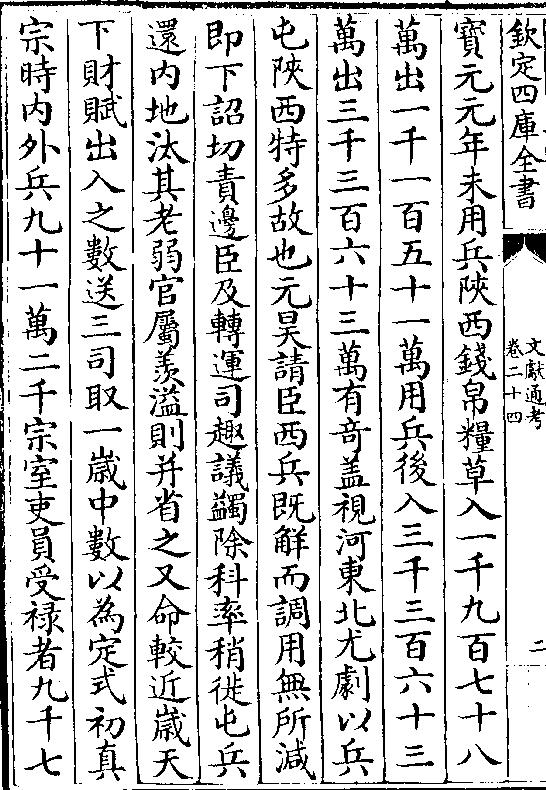 欽定四庫全書
文獻通考
卷二十四
二
寶元元年未用兵陜西錢帛糧草入一千九百七十八
萬出一千一百五十一萬用兵後入三千三百六十三
萬出三千三百六十三萬有奇盖視河東北尤劇以兵
屯陜西特多故也元昊請臣西兵既解而調用無所減
即下詔切責邊臣及轉運司趣議蠲除科率稍徙屯兵
還内地汰其老弱官屬羨溢則并省之又命較近嵗天
下財賦出入之數送三司取一嵗中數以為定式初真
宗時内外兵九十一萬二千宗室吏員受禄者九千七